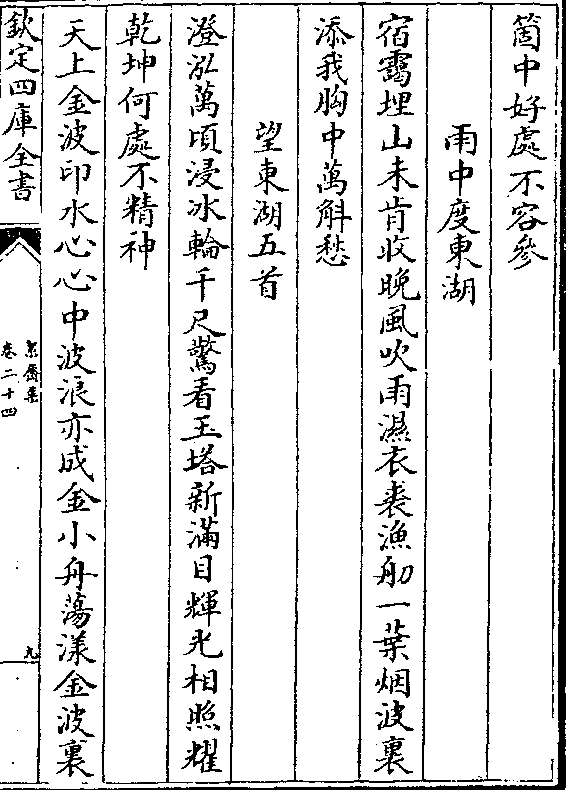 箇中好處不容參
雨中度東湖
宿靄埋山未肯收晚風吹雨濕衣裘漁舠一葉烟波裏
添我胸中萬斛愁
望東湖五首
澄泓萬頃浸冰輪千尺驚看玉塔新滿目輝光相照耀
乾坤何處不精神
天上金波印水心心中波浪亦成金小舟蕩漾金波裏
欽定四庫全書
絜齋集
卷二十四
九